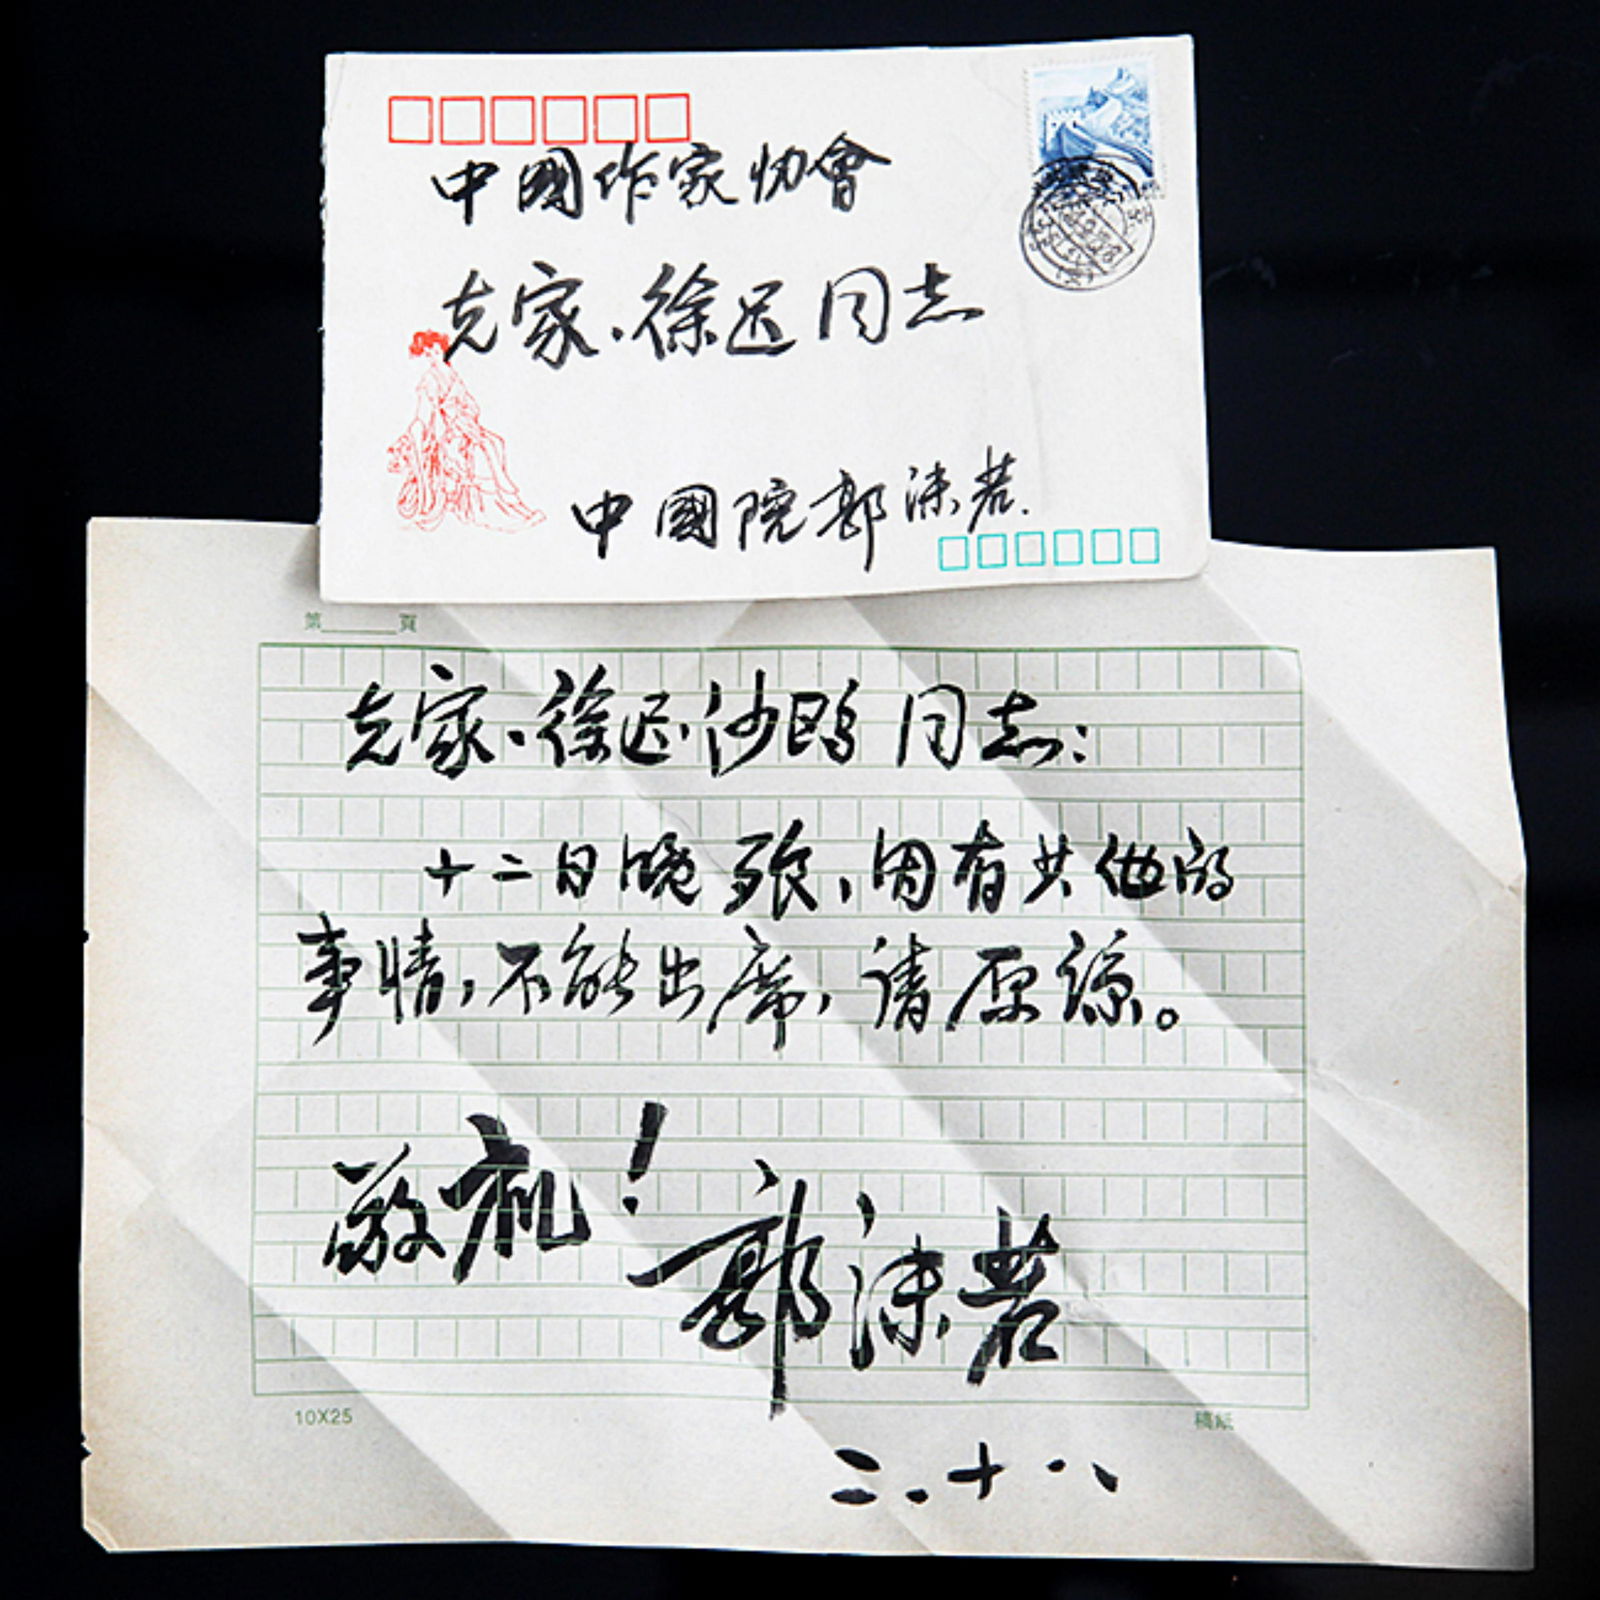 中國作家协會
克家、徐迟同志
中國院郭沫若.
第 頁
克家、徐迟、沙鸥同志：
十二日晚飱，因有其他的
事情，不能出席，请原諒。
敬礼！
郭沫若
二.十八
10X25
稿紙